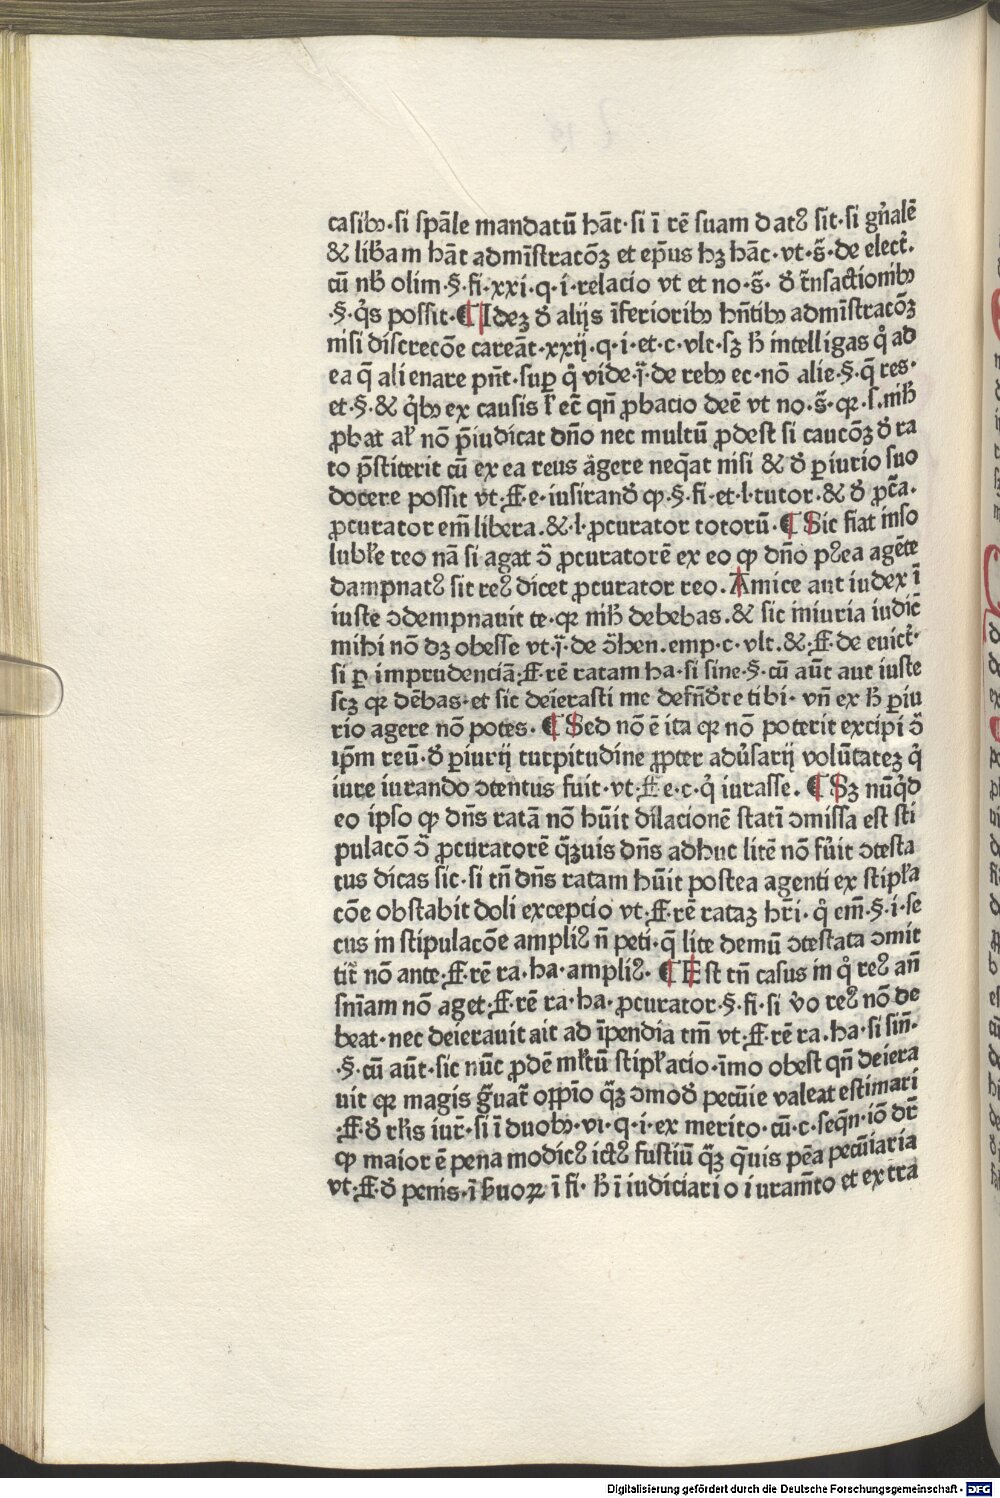 casibꝫ·si spāle mandatū hāt·si ī rē suam datꝰ sit·si gn̄alē
& lib̄am hāt admīstracōꝫ et ep̄us hꝫ hāt·vt·s̄·de elect̄·
cū nb̄ olim·§·fi·xxi·q·i·relacio vt et no·s̄· ꝺ̄ t̄nsactionibꝫ
·§·q̇s possit·¶ Ideꝫ ꝺ̄ alijs īferioribꝫ hn̄tibꝫ admīstracōꝫ
nisi discrecōe careāt·xxij·q·i·et·c·vlt·sꝫ h̄ intelligas q̊ ad
ea q̄ alienare pn̄t·suꝑ q̊ vide·ī·de rebꝫ ec·nō alie·§·q̄ res·
et·§·& q̇bꝫ ex causis ł ec̄ qn̄ ꝓbacio deē vt no·s̄·qꝛ·s.nib̄
ꝓbat ał nō p̄iudicat dn̄o nec multū ꝓdest si caucōꝫ ꝺ̄ ra
to p̄stiterit cū ex ea reus agere neq̄at nisi & ꝺ̄ ꝑiurio suo
docere possit vt·ff·e·iusiranꝺ̄ ꝙ·§·fi·et·l·tutor·& ꝺ̄ ꝓc̄a·
ꝓcurator em̄ libera.&·l·ꝓcurator totorū·¶ Sic fiat inso
lubłe reo nā si agat ↄ̄ ꝓcuratorē ex eo ꝙ dn̄o pꝰea agēte
dampnatꝰ sit reꝰ dicet ꝓcurator reo. Amice aut iudex ī
iuste ↄdempnauit te·qꝛ nih̄ debebas.& sic iniuria iudic̄
mihi nō dꝫ obesse vt·ī·de ↄ̄hen.emp·c·vlt.&·ff·de euict̄·
si ꝑ imprudenciā·ff·rē ratam ha·si sine·§·cū aūt aut iuste
scꝫ qꝛ dēbas·et sic deierasti me defn̄ꝺ̄re tibi· vn̄ ex h̄ ꝑiu
rio agere nō potes· ¶ Sed nō ē ita qꝛ nō poterit excipi ↄ̄
ip̄m reū·ꝺ̄ ꝑiurij turpitudine ꝓpter adūsarij volūtateꝫ q̊
iure iurando ↄtentus fuit·vt·ff e·c·q̊ iurasse. ¶ Sꝫ nūq̊d
eo ipso ꝙ dn̄s ratā nō hūit dilacionē statī ↄmissa est sti
pulacō ↄ̄ ꝓcuratorē q̄ꝫuis dn̄s adhuc litē nō fūit ↄtesta
tus dicas sic·si tn̄ dn̄s ratam hūit postea agenti ex stipła
cōe obstabit doli excepcio vt·ff·rē rataꝫ hr̄i·q̊ em̄·§·i·se
cus in stipulacōe ampliꝰ n̄ peti·q̄ lite demū ↄtestata ↄmit
tit̄ nō ante·ff·rē ra·ha·ampliꝰ· ¶ Est tn̄ casus in q̊ reꝰ an̄
sn̄iam nō aget·ff·rē ra·ha· ꝓcurator·§·fi·si v̊o reꝰ nō de
beat·nec deierauit ait ad īpendia tm̄ vt·ff·rē ra.ha·si sin̄·
·§·cū aūt·sic nūc ꝓdē młtū stipłacio·īmo obest qn̄ deiera
uit qꝛ magis g̊uat̄ oꝑp̄io q̄ꝫ ↄmoꝺ̄ pecūie valeat estimari
·ff·ꝺ̄ rłis iur̄·si ī duobꝫ·vi·q·i·ex merito·cū·c·seqn̄·iō dr̄
ꝙ maior ē pena modicꝰ ictꝰ fustiū q̄ꝫ q̄uis pēa pecūiaria
vt·ff·ꝺ̄ penis·ī b̄uoꝝ ī fi· h̄ ī iudiciario iuram̄to et extra
Digitalisierung gefördert durch die Deutsche Forschungsgemeinschaft · DFG